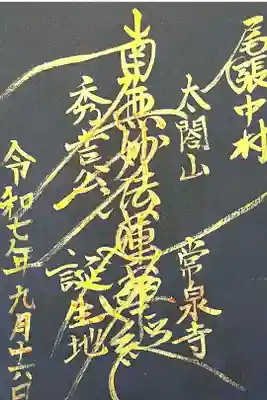 尾張中村
太閤山 常泉寺
南無妙法蓮華経
秀吉公 誕生地
令和七年九月十六日